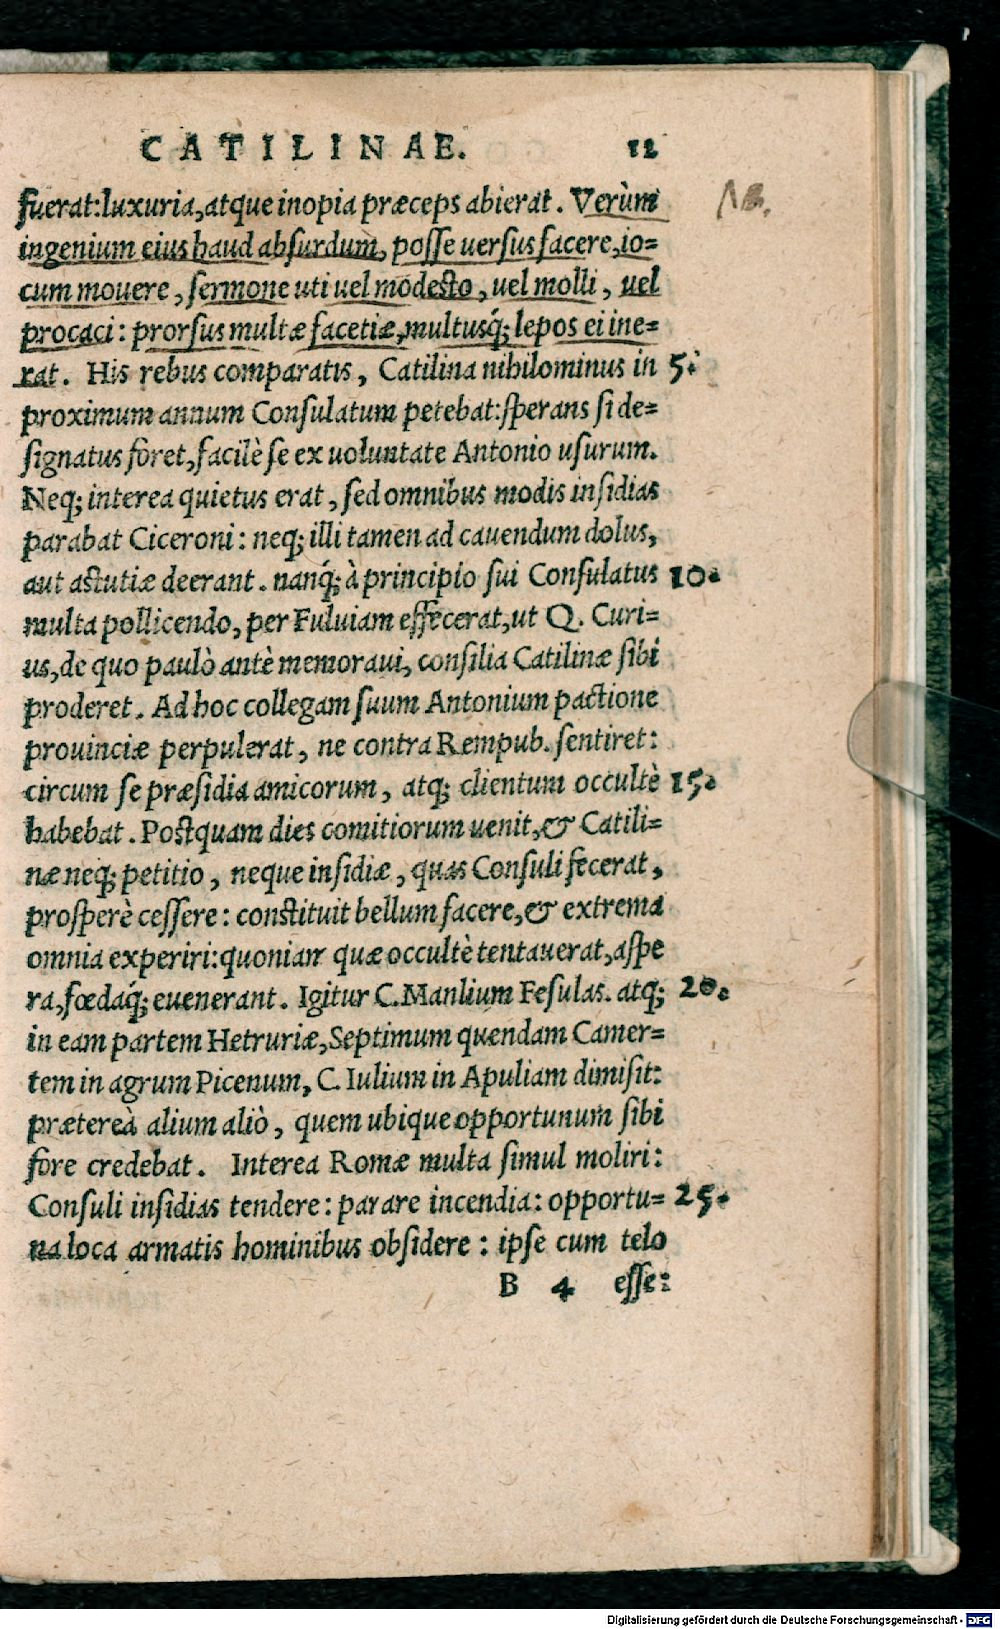 CATILINAE. 12
fuerat: luxuria, atque inopia præceps abierat. Verùm NB.
ingenium eius haud absurdum, posse uersus facere, io=
cum mouere, sermone uti uel modesto, uel molli, uel
procaci: prorsus multæ facetiæ, multusq́; lepos ei ine=
rat. His rebus comparatis, Catilina nihilominus in 5.
proximum annum Consulatum petebat: sperans si de=
signatus foret, facilè se ex uoluntate Antonio usurum.
Neq; interea quietus erat, sed omnibus modis insidias
parabat Ciceroni: neq; illi tamen ad cauendum dolus,
aut astutiæ deerant. nanq́; à principio sui Consulatus 10.
multa pollicendo, per Fuluiam effecerat, ut Q. Curi=
us, de quo paulò antè memoraui, consilia Catilinæ sibi
proderet. Ad hoc collegam suum Antonium pactione
prouinciæ perpulerat, ne contra Rempub. sentiret:
circum se præsidia amicorum, atq; clientum occultè 15.
habebat. Postquam dies comitiorum uenit, & Catili=
næ neq; petitio, neque insidiæ, quas Consuli fecerat,
prosperè cessere: constituit bellum facere, & extrema
omnia experiri: quoniam quæ occultè tentauerat, aspe
ra, fœdaq́; euenerant. Igitur C. Manlium Fesulas. atq; 20.
in eam partem Hetruriæ, Septimum quendam Camer=
tem in agrum Picenum, C. Iulium in Apuliam dimisit:
prætereà alium aliò, quem ubique opportunum sibi
fore credebat. Interea Romæ multa simul moliri:
Consuli insidias tendere: parare incendia: opportu= 25.
na loca armatis hominibus obsidere: ipse cum telo
B 4 esse:
Digitalisierung gefördert durch die Deutsche Forschungsgemeinschaft - DFG